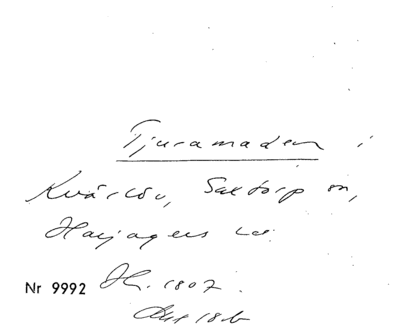 Tjuramaden i
Kvärlöv, Saxtorp sn,
Harjagers hd.
Nr 9992 1807.
18 b